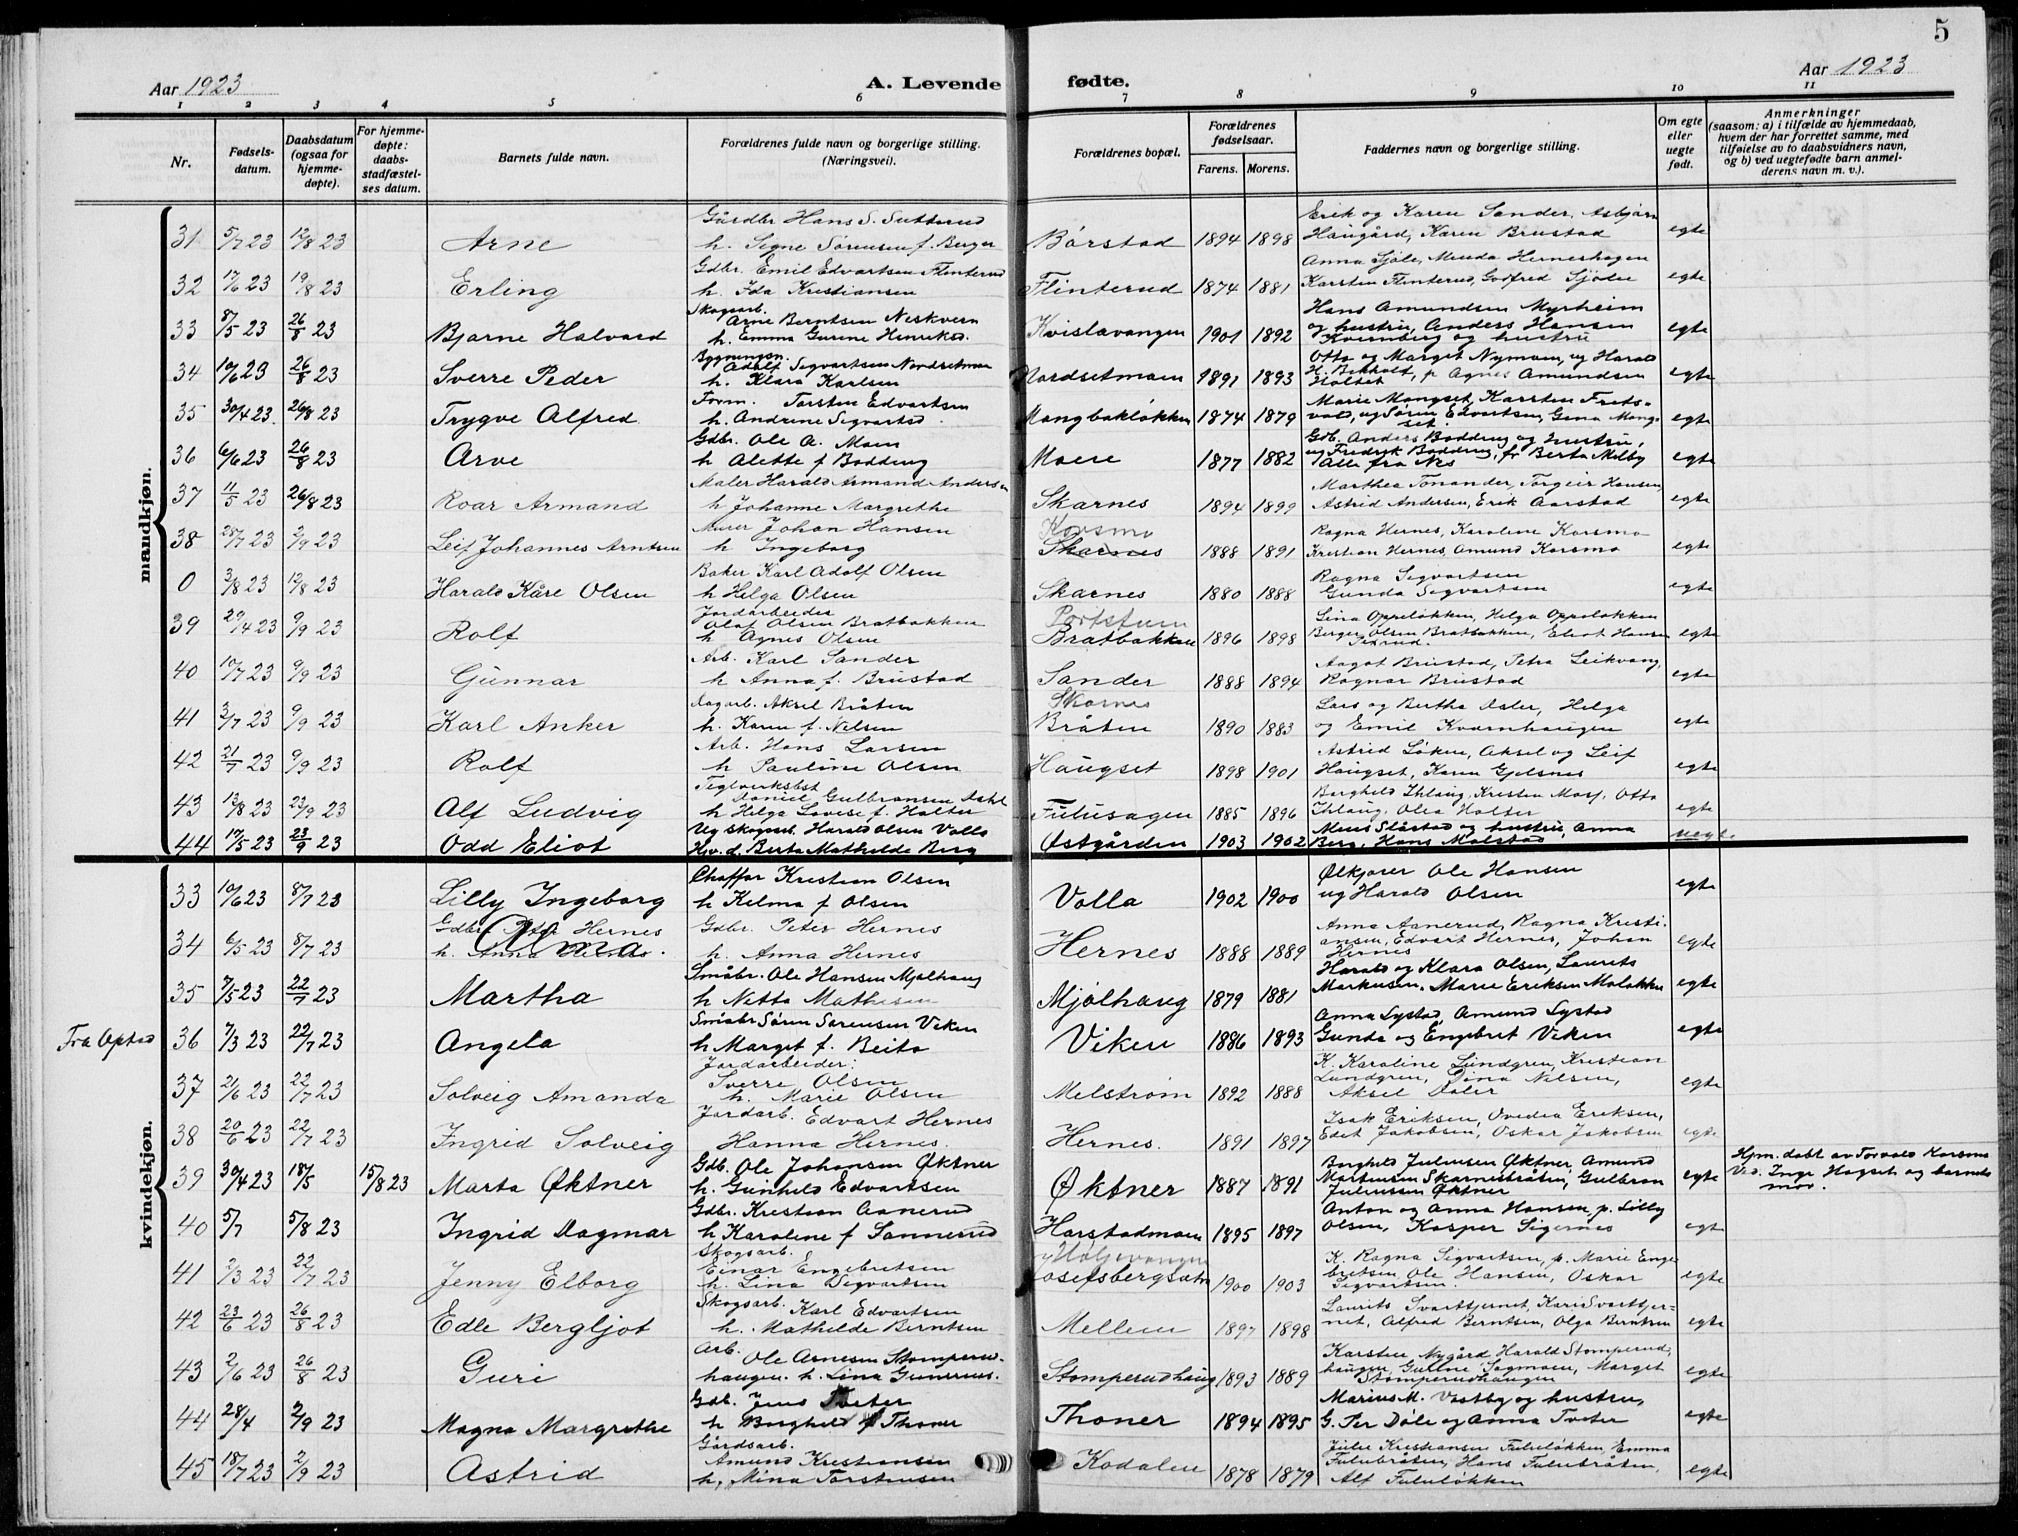 5
Aar 1923
A. Levende fødte.
Aar 1923
1 2 3 4 5 6 7 8 9 10 11
Nr.
Fødsels-
datum.
Daabsdatum
(ogsaa for
hjemme-
døpte).
For hjemme-
døpte:
daabs-
stadfæstel-
ses datum.
Barnets fulde navn.
Forældrenes fulde navn og borgerlige stilling.
(Næringsvei).
Forældrenes bopæl.
Forældrenes
fødselsaar.
Farens. Morens.
Faddernes navn og borgerlige stilling.
Om egte
eller
uegte
født.
Anmerkninger
(saasom: a) i tilfælde av hjemmedaab,
hvem der har forrettet samme, med
tilføielse av to daabsvidners navn,
og b) ved uegtefødte barn anmel-
derens navn m. v.).
mandkjøn.
31 5/7 23 12/8 23 Arne Gårdbr Hans S. Sutterud
h. Signe Sørensen f. Berger Børstad 1894 1898 Erik og Karen Sander, Asbjørn
Haugård, Karen Brustad egte
32 17/6 23 19/8 23 Erling Gdbr. Emil Edvartsen Flinterud
h. Ida Kristiansen Flinterud 1874 1881 Anna Sjøle, Menda Herneshagen
Karsten Flinterud, Godfred Sjølie egte
33 8/5 23 26/8 23 Bjarne Halvard Skogsarb.
Arne Berntsen Neskvern
h. Emma Gurine Henriks. Kvislavangen 1901 1892 Hans Amundsen Myrheim
og hustru, Anders Hansen
og hustru egte
34 10/6 23 26/8 23 Sverre Peder Bygningsn.
Adolf Segvartsen Nordsetmoen
h. Klara Karlsen Nordsetmoen 1891 1893 Otto og Marget Nymoen, ug Harald
H. Bekholt, p Agnes Amundsen
Holset egte
35 30/4 23. 26/8 23 Trygve Alfred Form. Torsten Edvartsen
h. Andrine Segvartsd. Mangbakløkken 1874 1879 Marie Mangset, Karsten Frets-
vold, ug Søren Edvartsen, Gena Mang-
set. egte
36 6/6 23 26/8 23 Arve Gdbr. Ole A. Moen
h Alette f Bodding Moen 1877 1882 Gdb. Anders Bodding og hustru,
ug Fredrik Bodding, fr Berta Melby
Alle fra Nes egte
37 11/5 23 26/8 23 Roar Armand Maler Harald Armand Andersen
h Johanne Margrethe Skarnes 1894 1899 Marthea Tonander, Torgeir Hansen,
Astrid Andersen, Erik Aarstad egte
38 28/7 23 2/9 23 Leif Johannes Arntsen Murer Johan Hansen
h Ingeborg Korsmo
Skarnes 1888 1891 Ragna Hernes, Karoline Korsmo
Kristian Hernes, Amund Korsmo egte
0 3/8 23 12/8 23 Harald Kåre Olsen Baker Karl Adolf Olsen
h Helga Olsen Skarnes 1880 1888 Ragna Segvartsen
Gunda Segvartsen egte
39 29/4 23 9/9 23 Rolf Jordarbeider
Olaf Olsen Bratbakken
h Agnes Olsen Portstuen
Bratbakken 1896 1898 Lina Oppeløkken, Helga Oppeløkken
Berger Olsen Bratbakken, Eliot Hansen egte
40 10/7 23 9/9 23 Gunnar Arb. Karl Sander
h Anna f. Brustad Sander 1888 1894 Aagot Brustad, Petra Leikvang,
Ragnar Brustad egte
41 3/7 23 9/9 23 Karl Anker Dagarb. Aksel Bråten
h. Karen f. Nilsen Skarnes
Bråten 1890 1883 Lars og Bertha Osler, Helga
og Emil Kvernhaugen egte
42 21/7 23 9/9 23 Rolf Arb. Hans Larsen
h Pauline Olsen Haugset 1898 1901 Astrid Løken, Aksel og Leif
Haugset, Karen Gjelsnes egte
43 12/8 23 23/9 23 Alf Ludvig Teglverksbst
Daniel Gulbransen
h Helga Lovise f. Halter Fulusagen 1885 1896 Borghild Ihlaug, Kristen Mosf, Otto
Ihlaug, Olea Halter egte
44 17/5 23 23/9 23 Odd Eliot Ug skogsarb. Harald Olsen Volla
Berta Mathilde Berg Østgården 1903 1902 Slåstad og hustru, Anna
Berg, Hans Molstad uegte
kvindekjøn.
33 10/6 23 8/7 23 Lilly Ingeborg Chaffør Kristian Olsen
h Kelma f Olsen Volla 1902 1900 Ølkjører Ole Hansen
ug Harald Olsen egte
34 6/5 23 8/7 23 Gdbr. Peter Hernes
Alma
h. Anna Hernes. Gdbr. Peter Hernes
h. Anna Hernes Hernes 1888 1889 Anna Aanerud, Ragna Kristi-
ansen, Edvart Hernes, Johan
Hernes egte
35 7/5 23 22/7 23 Martha Småbr. Ole Hansen Mjølhaug
h Netta Mathisen Mjølhaug 1879 1881 Harald og Klara Olsen, Laurits
Markusen, Marie Eriksen Moløkken egte
Fra Opstad 36 7/3 23 22/7 23 Angela Småbr Søren Sørensen Viken
h Marget f. Beito Viken 1886 1893 Anna Lystad, Amund Lystad
Gunda og Engebret Viken egte
37 21/6 23 22/7 23 Solveig Amanda Jordarbeider.
Sverre Olsen
h. Marie Olsen Melstrøm 1892 1888 K. Karoline Lundgren, Kristian
Lundgren, Dina Nilsen,
Aksel Osler egte
38 20/6 23 22/7 23 Ingrid Solveig Jordarb. Edvart Hernes
Hanna Hernes. Hernes. 1891 1897 Isak Eriksen, Ovedia Eriksen,
Edit Jakobsen, Oskar Jakobsen egte
39 30/4 23 18/5 15/8 23 Marta Øktner Gdb. Ole Johansen Øktner
h. Gunhild Edvartsen Øktner 1887 1891 Borghild Juliussen Øktner, Amund
Martinsen Skarnesbråten, Gulbran
Juliussen Øktner egte Hjm. døbt av Torvald Korsmo
Ved. Inga Hagset og barnets
mor.
40 5/7 5/8 23 Ingrid Dagmar Gdbr. Kristian Aanerud
h Karoline f Sannerud Harstadmoen 1895 1897 Anton og Anna Hansen, p. Lilly
Olsen, Kasper Sigernes egte
41 2/3 23 22/7 23 Jenny Elborg Skogsarb.
Einar Engebretsen
h. Lina Segvartsen Josefsbergsætn 1900 1903 K. Ragna Sigvartsen, p. Marie Enge-
bretsen, Ole Hansen, Oskar
Segvartsen. egte
42 23/6 23 26/8 23 Edle Bergljot Skogsarb. Karl Edvartsen
h. Mathilde Berntsen Mellem 1897 1898 Laurits Svarttjernet, Karis Svarttjer-
net, Alfred Berntsen, Olga Berntsen egte
43 2/6 23 26/8 23 Guri Arb.
Ole Arnesen Stomperud-
haugen. h. Lina Gunerius. Stomperudhaug 1893 1889 Karsten Nygård, Harald Stomperud-
haugen, Gulline Sagmoen, Marget
Stomperudhaugen egte
44 28/4 2/9 23 Magna Margrethe Gdb. Jens Tveter
h Borghild f Thoner Thoner 1894 1895 Marius M. Vestby og hustru,
G. Per Døle og Anna Tveter egte
45 18/7 23 2/9 23 Astrid Gårdsarb.
Amund Kristiansen
h, Mina Torstensen Kodalen 1878 1879 Julie Kristiansen Fululøkken, Emma
Fulubråten, Hans Fulubråten,
Alf Fululøkken egte